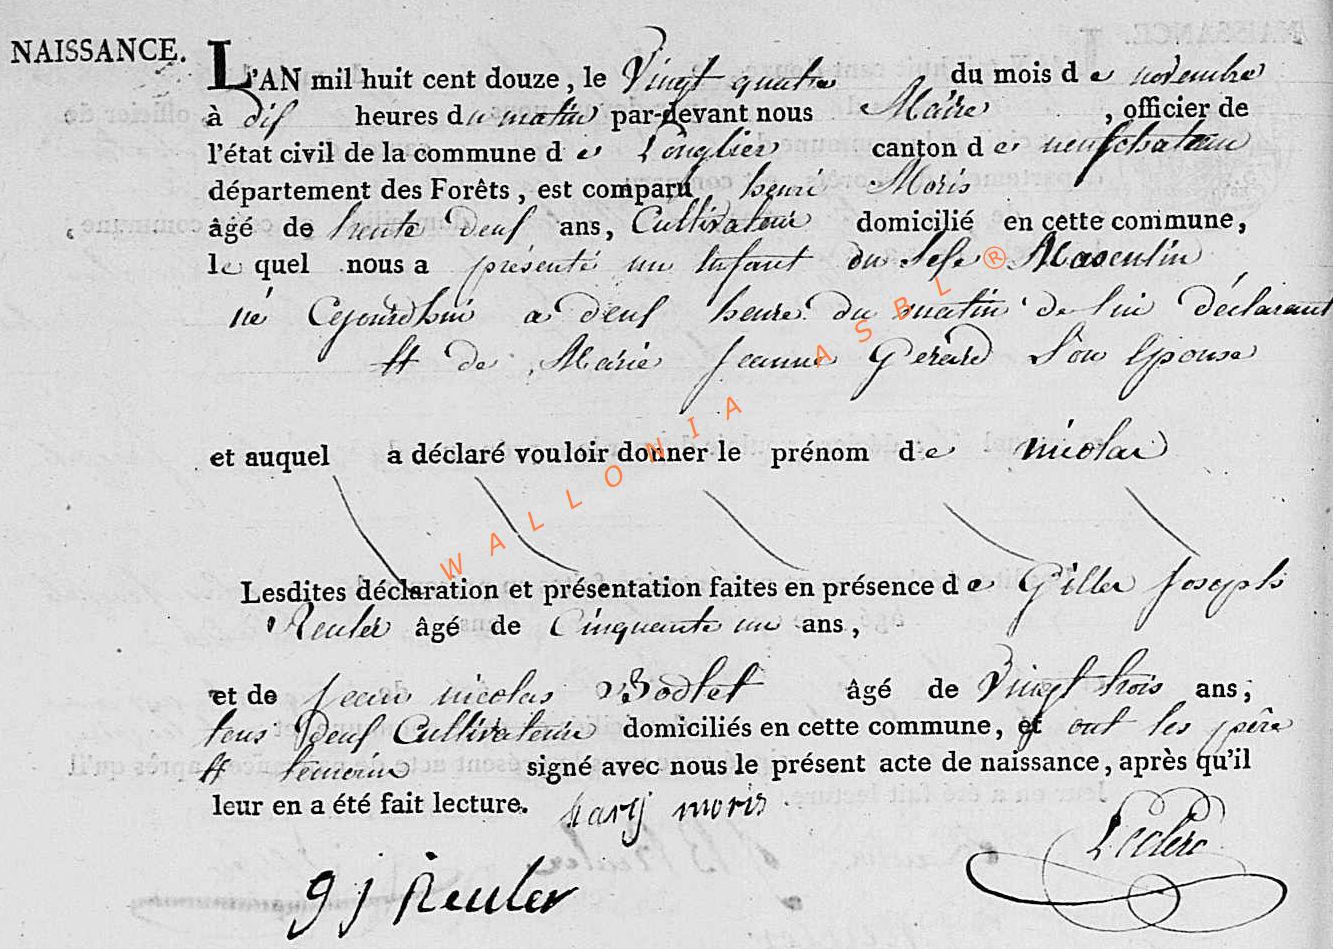 NAISSANCE. L'AN mil huit cent douze, le Vingt quatre du mois de novembre
à dix heures du matin par-devant nous Maire, officier de
l'état civil de la commune de Longlier canton de neufchateau
département des Forêts, est comparu henri Moris
âgé de trente deux ans, Cultivateur domicilié en cette commune,
le quel nous a présenté un Enfant du Sexe Masculin
né Cejourdhui a deux heure du matin de lui déclarant
et de Marie Jeanne Gerard Son Epouse
et auquel a déclaré vouloir donner le prénom de nicolas
Lesdites déclaration et présentation faites en présence de Gilles Joseph
Reuter âgé de Cinquante un ans,
et de Jean nicolas âgé de Vingt trois ans,
tous deux Cultivateur domiciliés en cette commune, et ont les père
et temoin signé avec nous le présent acte de naissance, après qu'il
leur en a été fait lecture. moris
Leclerc
g j Reuter
WALLONIA ASBL ®